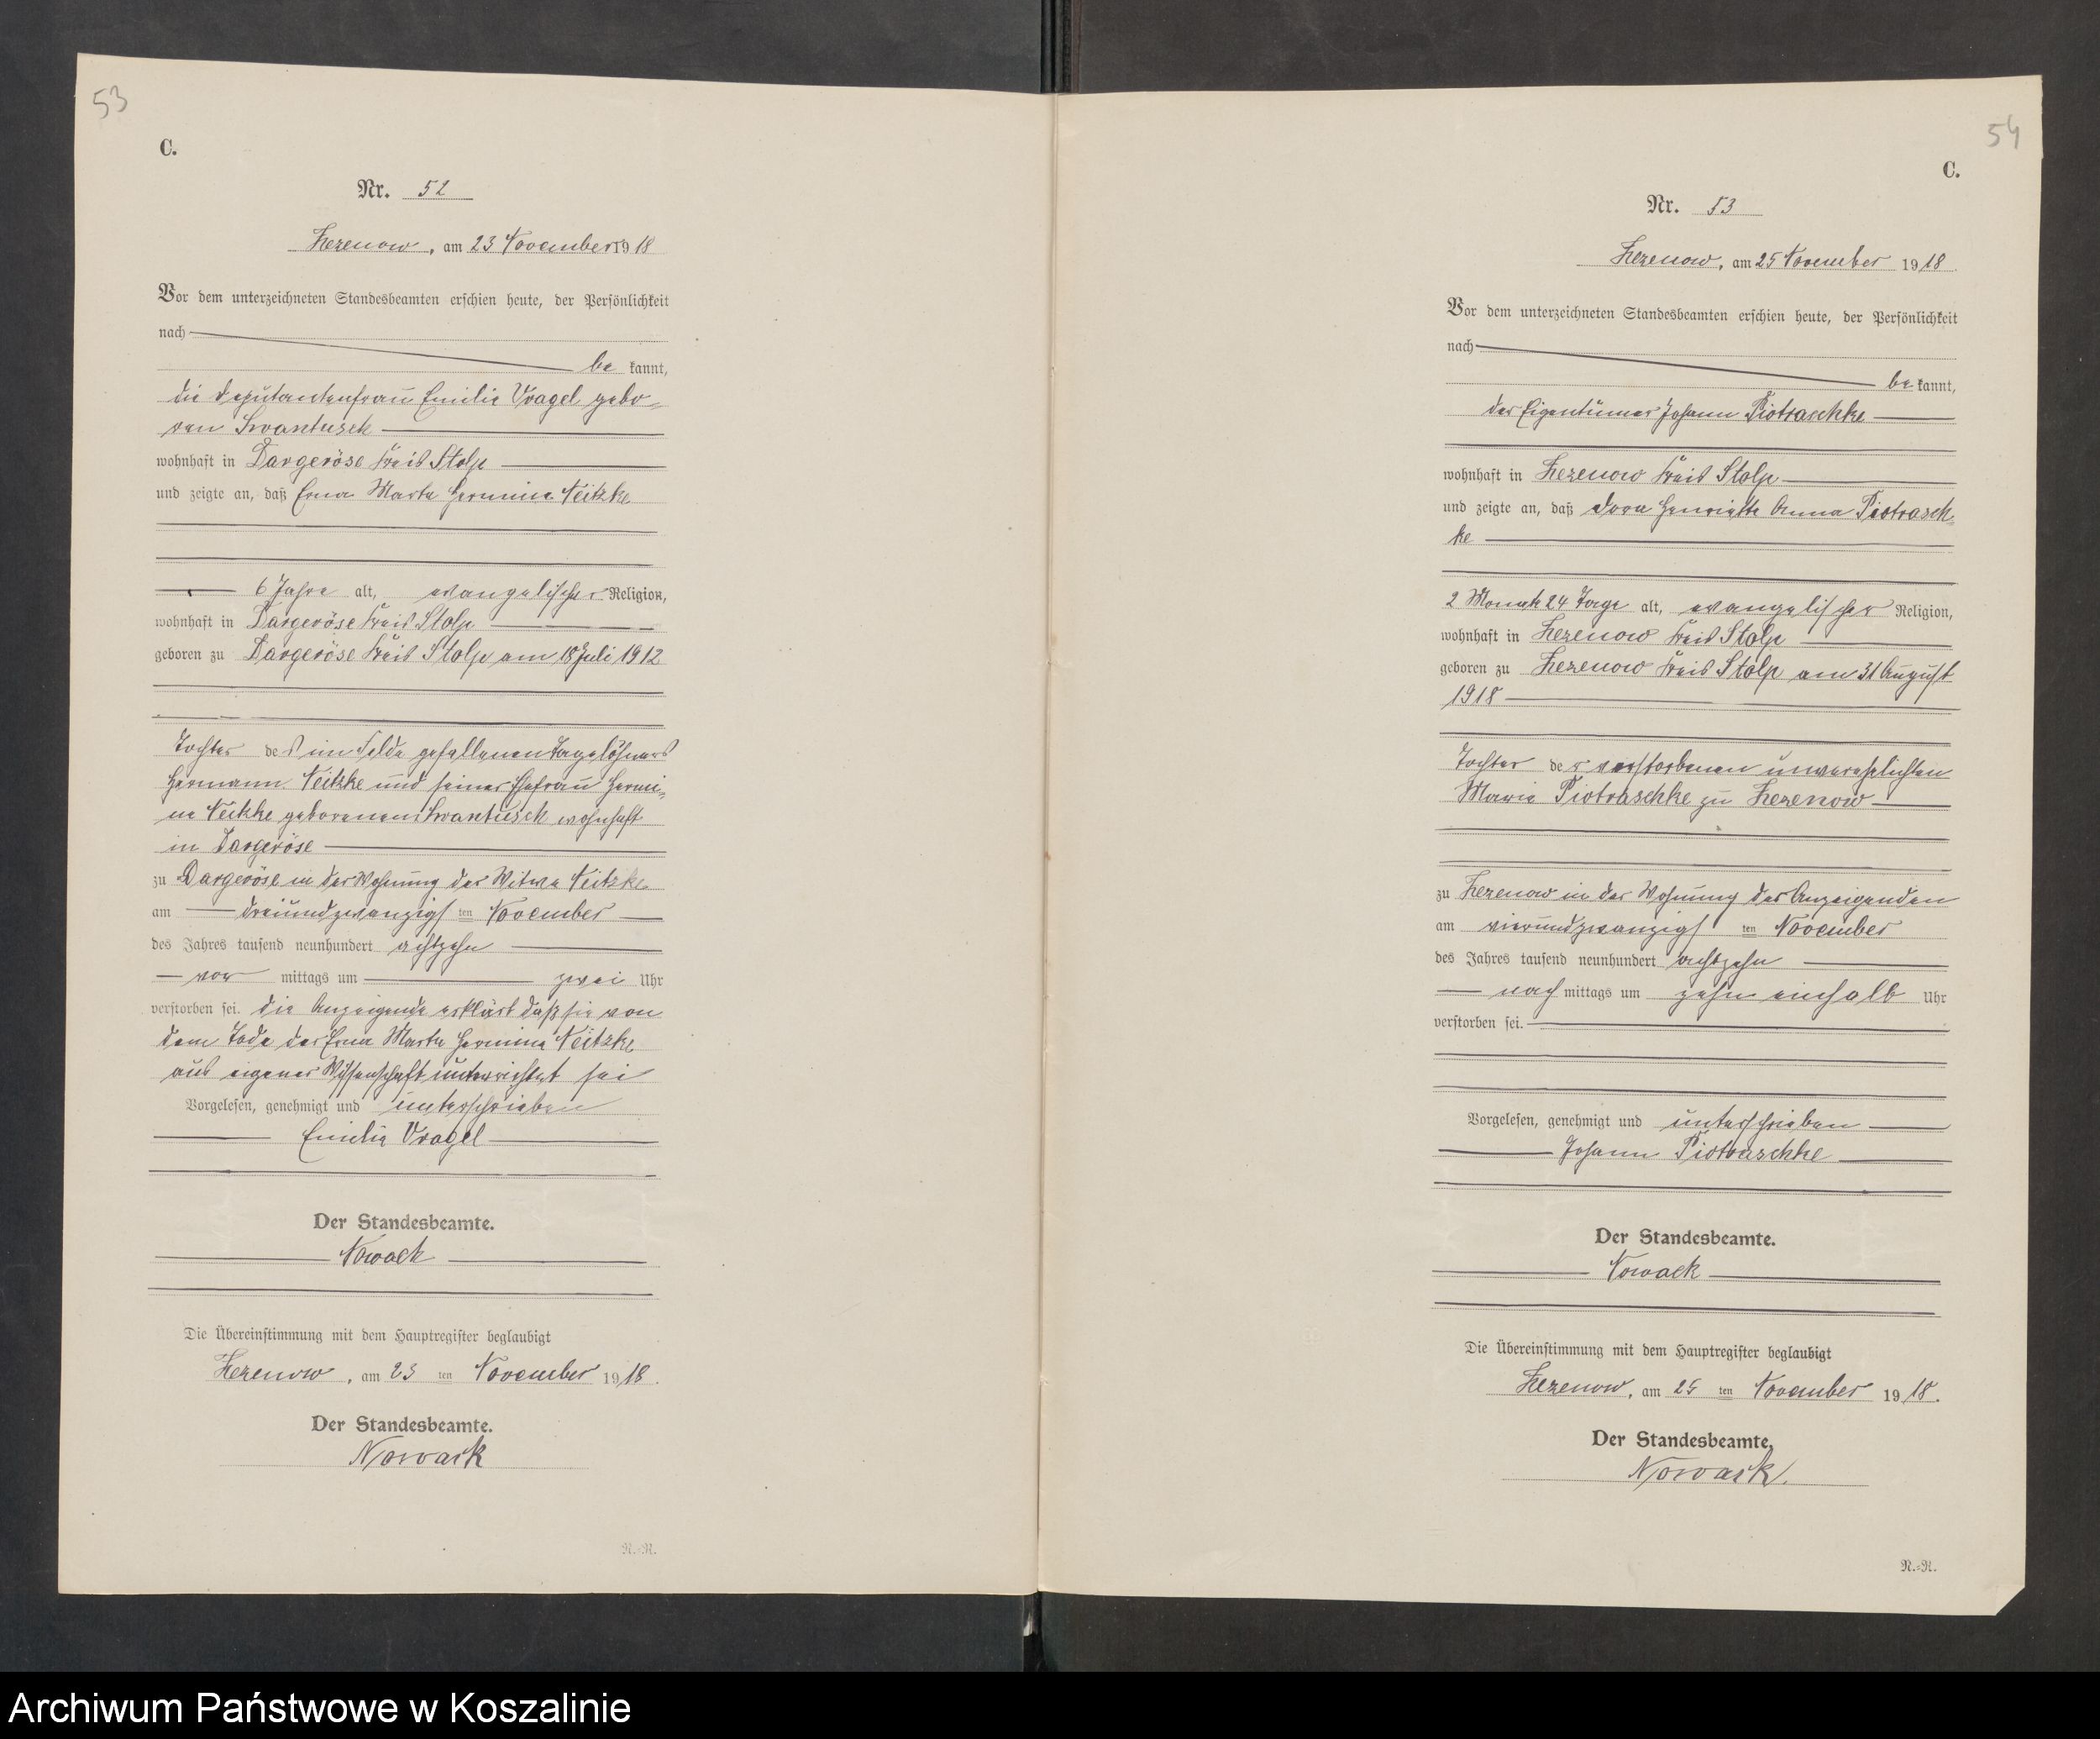 53
C.
Nr. 52
Zezenow, am 23 November 1918
Vor dem unterzeichneten Standesbeamten erschien heute, der Persönlichkeit
nach
be kannt,
die Deputantenfrau Emilie Vragel gebo-
ren Swantusch
wohnhaft in Dargeröse Kreis Stolp
und zeigte an, daß Erna Marta Hermine Neitzke
6 Jahre alt, evangelischer Religion,
wohnhaft in Dargeröse Kreis Stolp
geboren zu Dargeröse Kreis Stolp am 18 Juli 1912
Tochter des im Felde gefallenen Tagelöhners
Hermann Neitzke und seiner Ehefrau Hermi-
ne Neitzke geborenen Swantusch wohnhaft
in Dargeröse
zu Dargeröse in der Wohnung der Witwe Neitzke
am dreiundzwanzigsten November
des Jahres tausend neunhundert achtzehn
vor mittags um zwei Uhr
verstorben sei. Die Anzeigende erklärt daß sie von
dem Tode der Erna Marta Hermine Neitzke
aus eigener Wissenschaft unterrichtet sei
Vorgelesen, genehmigt und unterschrieben
Emilie Vragel
Der Standesbeamte.
Nowack
Die Übereinstimmung mit dem Hauptregister beglaubigt
Zezenow, am 23 ten November 1918.
Der Standesbeamte.
Nowack
R.-R.
54
C.
Nr. 53
Zezenow, am 25 November 1918.
Vor dem unterzeichneten Standesbeamten erschien heute, der Persönlichkeit
nach
be kannt,
der Eigentümer Johann Piotraschke
wohnhaft in Zezenow Kreis Stolp
und zeigte an, daß Dora Henriette Anna Piotrasch-
ke
2 Monate 24 Tage alt, evangelischer Religion,
wohnhaft in Zezenow Kreis Stolp
geboren zu Zezenow Kreis Stolp am 31 August
1918
Tochter der verstorbenen unverehelichten
Marie Piotraschke zu Zezenow
zu Zezenow in der Wohnung des Anzeigenden
am vierundzwanzigsten November
des Jahres tausend neunhundert achtzehn
nach mittags um zehn einhalb Uhr
verstorben sei.
Vorgelesen, genehmigt und unterschrieben
Johann Piotraschke
Der Standesbeamte.
Nowack
Die Übereinstimmung mit dem Hauptregister beglaubigt
Zezenow, am 25 ten November 1918.
Der Standesbeamte,
Nowack.
R.-R.
Archiwum Państwowe w Koszalinie